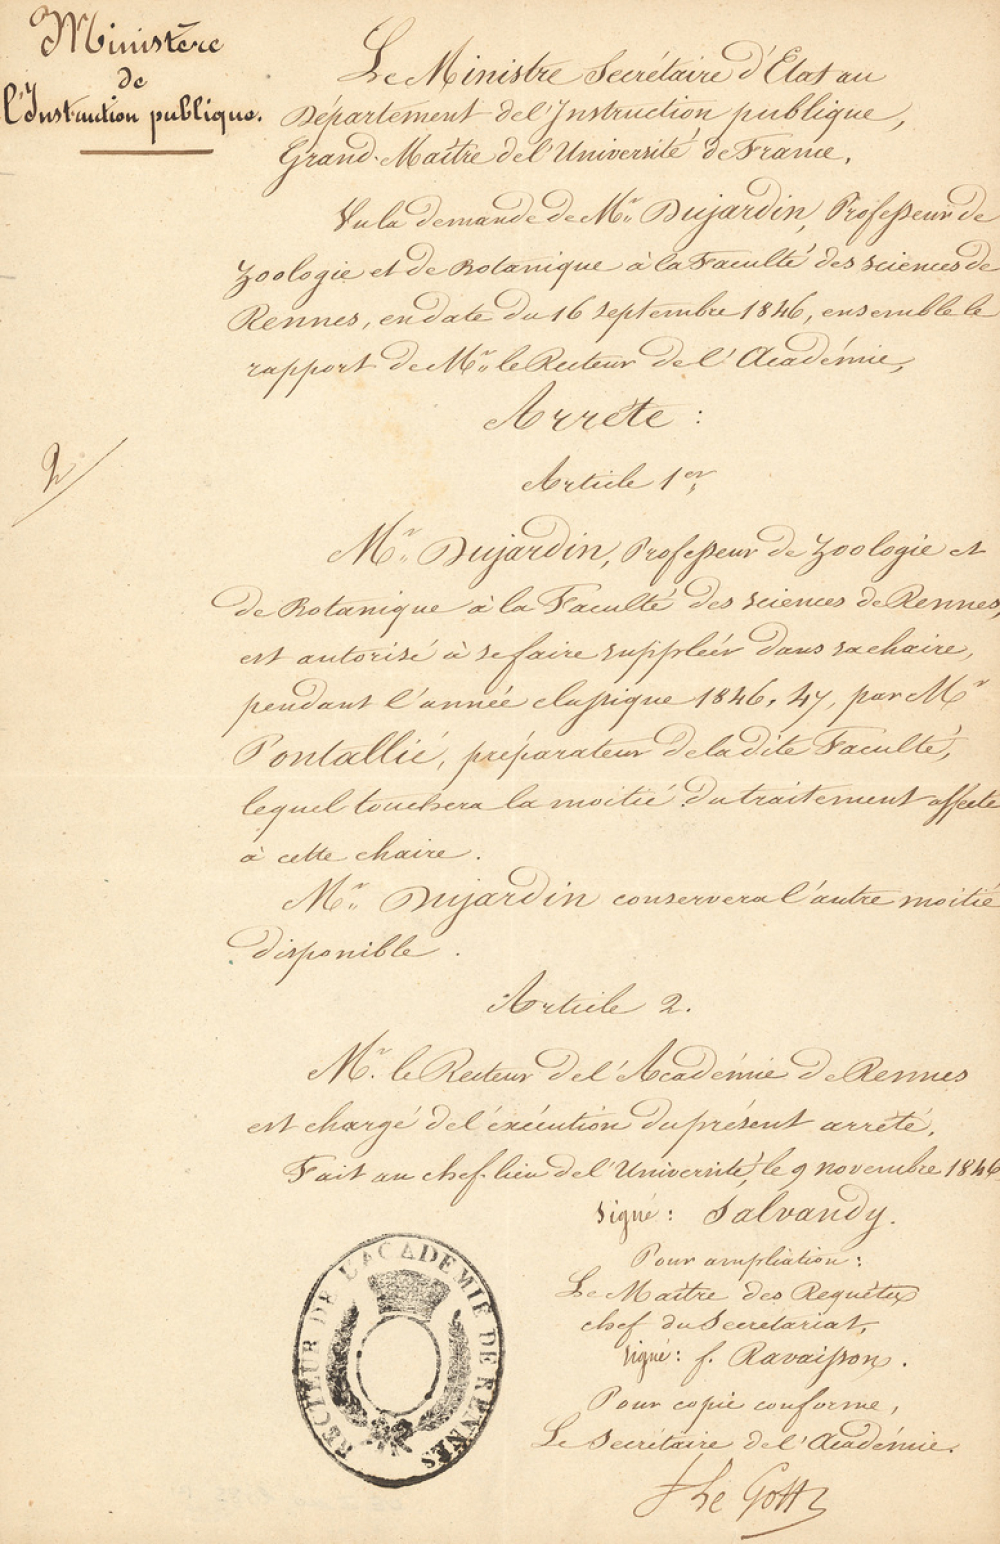 Ministère
de
l'Instruction publique.
Le Ministre Secrétaire d'Etat au
Département de l'Instruction publique,
Grand-Maître de l'Université de France.
Vu la demande de Mr. Dujardin, Professeur de
Zoologie et de Botanique à la Faculté des sciences de
Rennes, en date du 16 septembre 1846, ensemble le
rapport de Mr. le Recteur de l'Académie,
Arrête :
Article 1er,
2
Mr. Dujardin, Professeur de Zoologie et
de Botanique à la Faculté des sciences de Rennes,
est autorisé à se faire suppléer dans sa chaire,
pendant l'année classique 1846, 47, par Mr
Pontallié, préparateur de la dite Faculté,
lequel touchera la moitié du traitement affecté
à cette chaire.
Mr. Dujardin conservera l'autre moitié
disponible.
Article 2.
Mr. le Recteur de l'Académie de Rennes
est chargé de l'éxécution du présent arrêté.
Fait au chef-lieu de l'Université, le 9 novembre 1846
signé : Salvandy.
Pour ampliation :
Le Maître des Requêtes
chef du Secrétariat,
signé : f. Ravaisson.
Pour copie conforme,
Le Secrétaire de l'Académie.
Le Gott
RECTEUR DE L'ACADEMIE DE RENNES